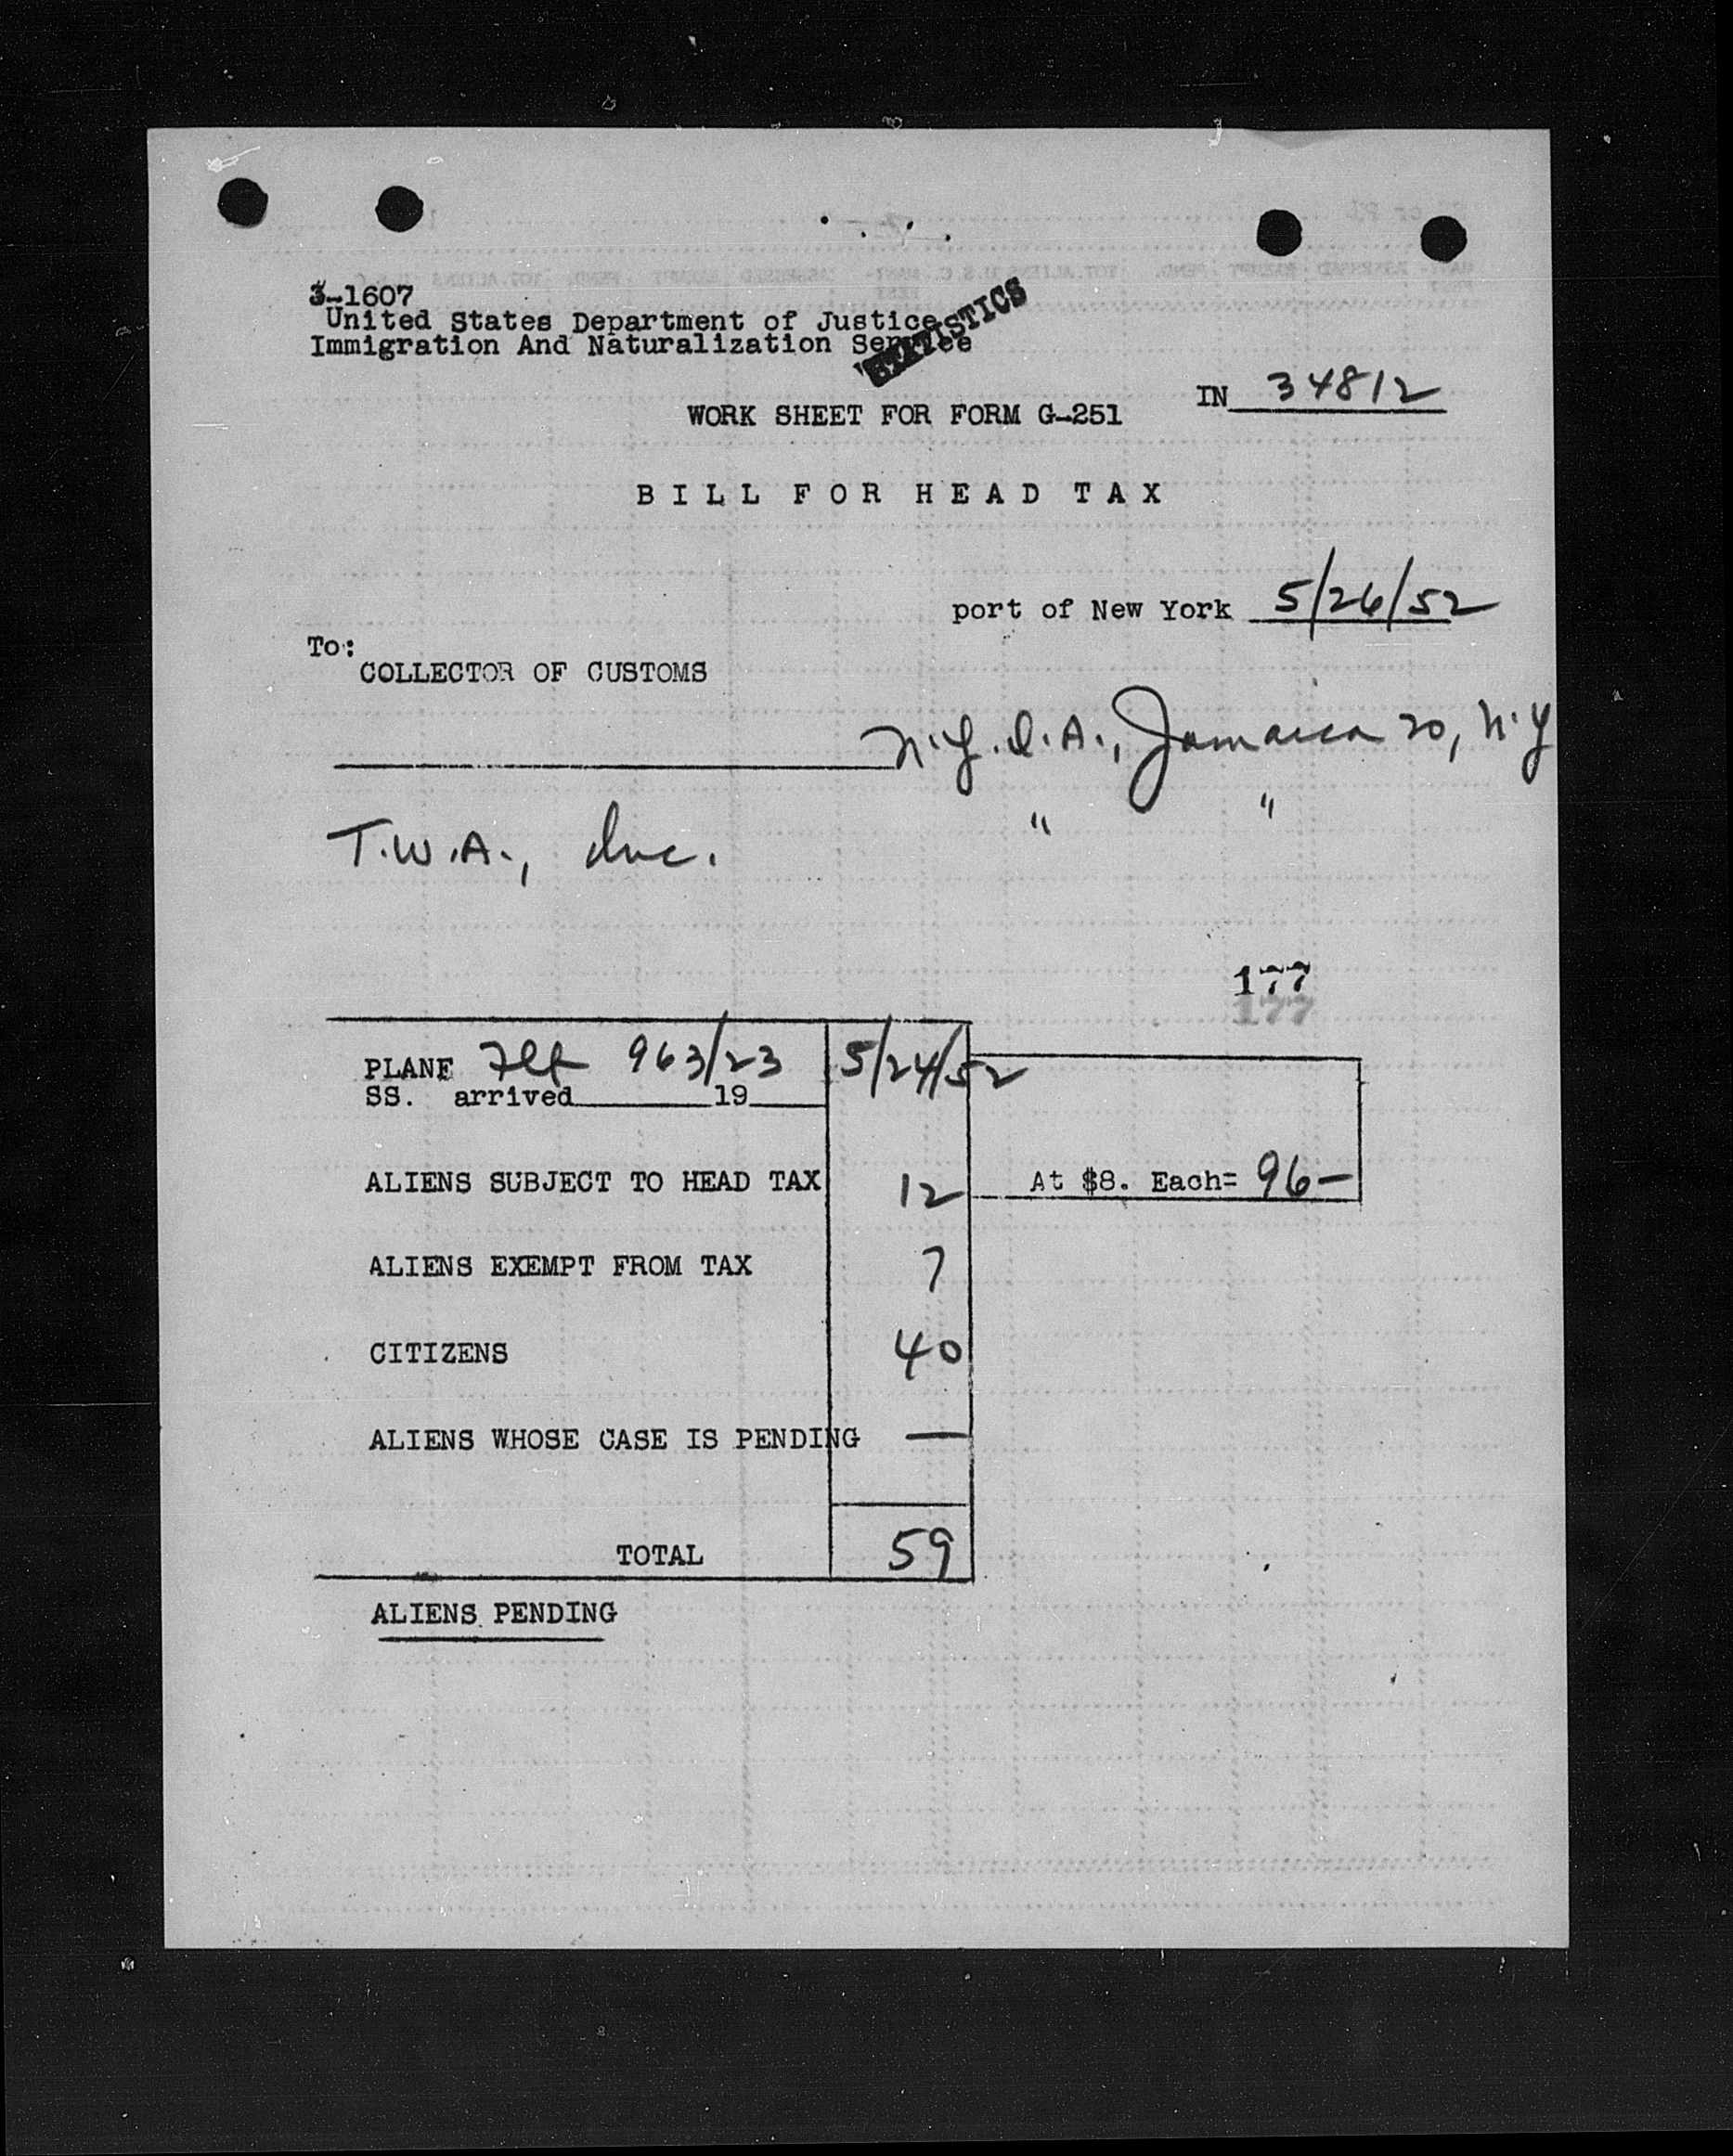 3-1607
United States Department of Justice
Immigration And Naturalization Service
STATISTICS
IN 34812
WORK SHEET FOR FORM G-251
BILL FOR HEAD TAX
port of New York 5/26/52
To:
COLLECTOR OF CUSTOMS
N.Y.I.A., Jamaica 20, N.Y
T.W.A., Inc. " "
177
177
PLANE Flt 963/23 5/24/52
SS. arrived 19
ALIENS SUBJECT TO HEAD TAX 12 At $8. Each= 96-
ALIENS EXEMPT FROM TAX 7
CITIZENS 40
ALIENS WHOSE CASE IS PENDING —
TOTAL 59
ALIENS PENDING